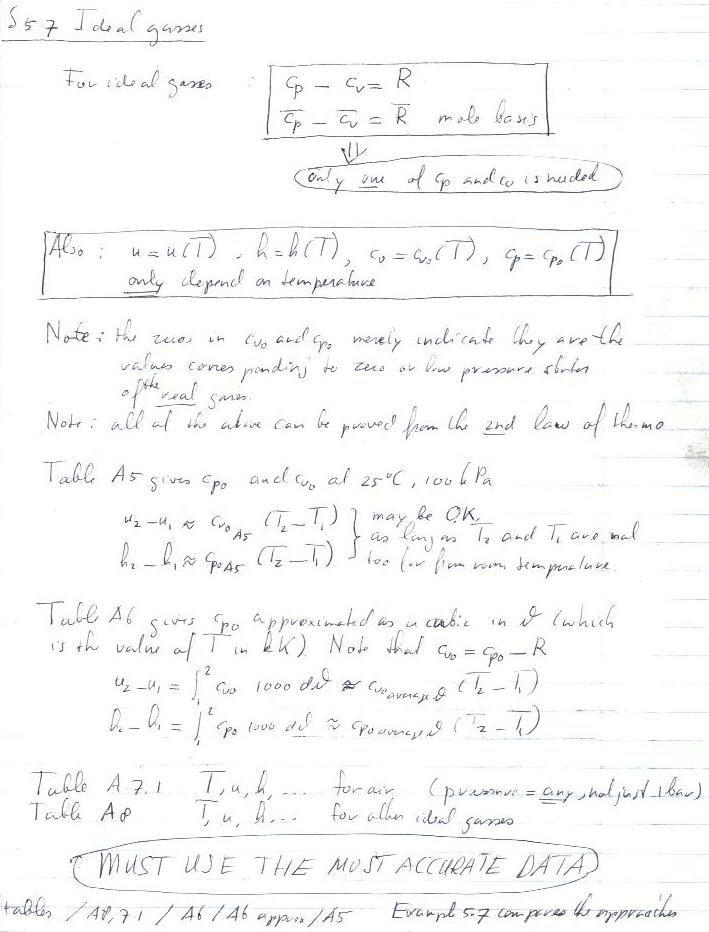 § 5.7 Ideal gasses
For ideal gases : cp - cv = R
c̄p - c̄v = R̄ mole basis
⇓
Only one of cp and cv is needed
Also : u = u(T) , h = h(T), cv = cv₀(T), cp = cp₀(T)
only depend on temperature
Note : the zeros in cv₀ and cp₀ merely indicate they are the
values corresponding to zero or low pressure states
of the real gases.
Note : all of the above can be proved from the 2nd law of thermo
Table A5 gives cp₀ and cv₀ at 25°C, 100 kPa
u₂ - u₁ ≈ cv₀ A5 (T₂ - T₁) } may be O.K.
as long as T₂ and T₁ are not
h₂ - h₁ ≈ cp₀ A5 (T₂ - T₁) } too far from room temperature
Table A6 gives cp₀ approximated as a cubic in ϑ (which
is the value of T in kK). Note that cv₀ = cp₀ - R
u₂ - u₁ = ∫₁² cv₀ 1000 dϑ ≈ cv₀ average ϑ (T₂ - T₁)
h₂ - h₁ = ∫₁² cp₀ 1000 dϑ ≈ cp₀ average ϑ (T₂ - T₁)
Table A 7.1 T, u, h, ... for air (pressure = any, not just 1 bar)
Table A8 T, u, h... for other ideal gasses
MUST USE THE MOST ACCURATE DATA
tables / A8, 7.1 / A6 / A6 approx / A5 Example 5.7 compares the approaches